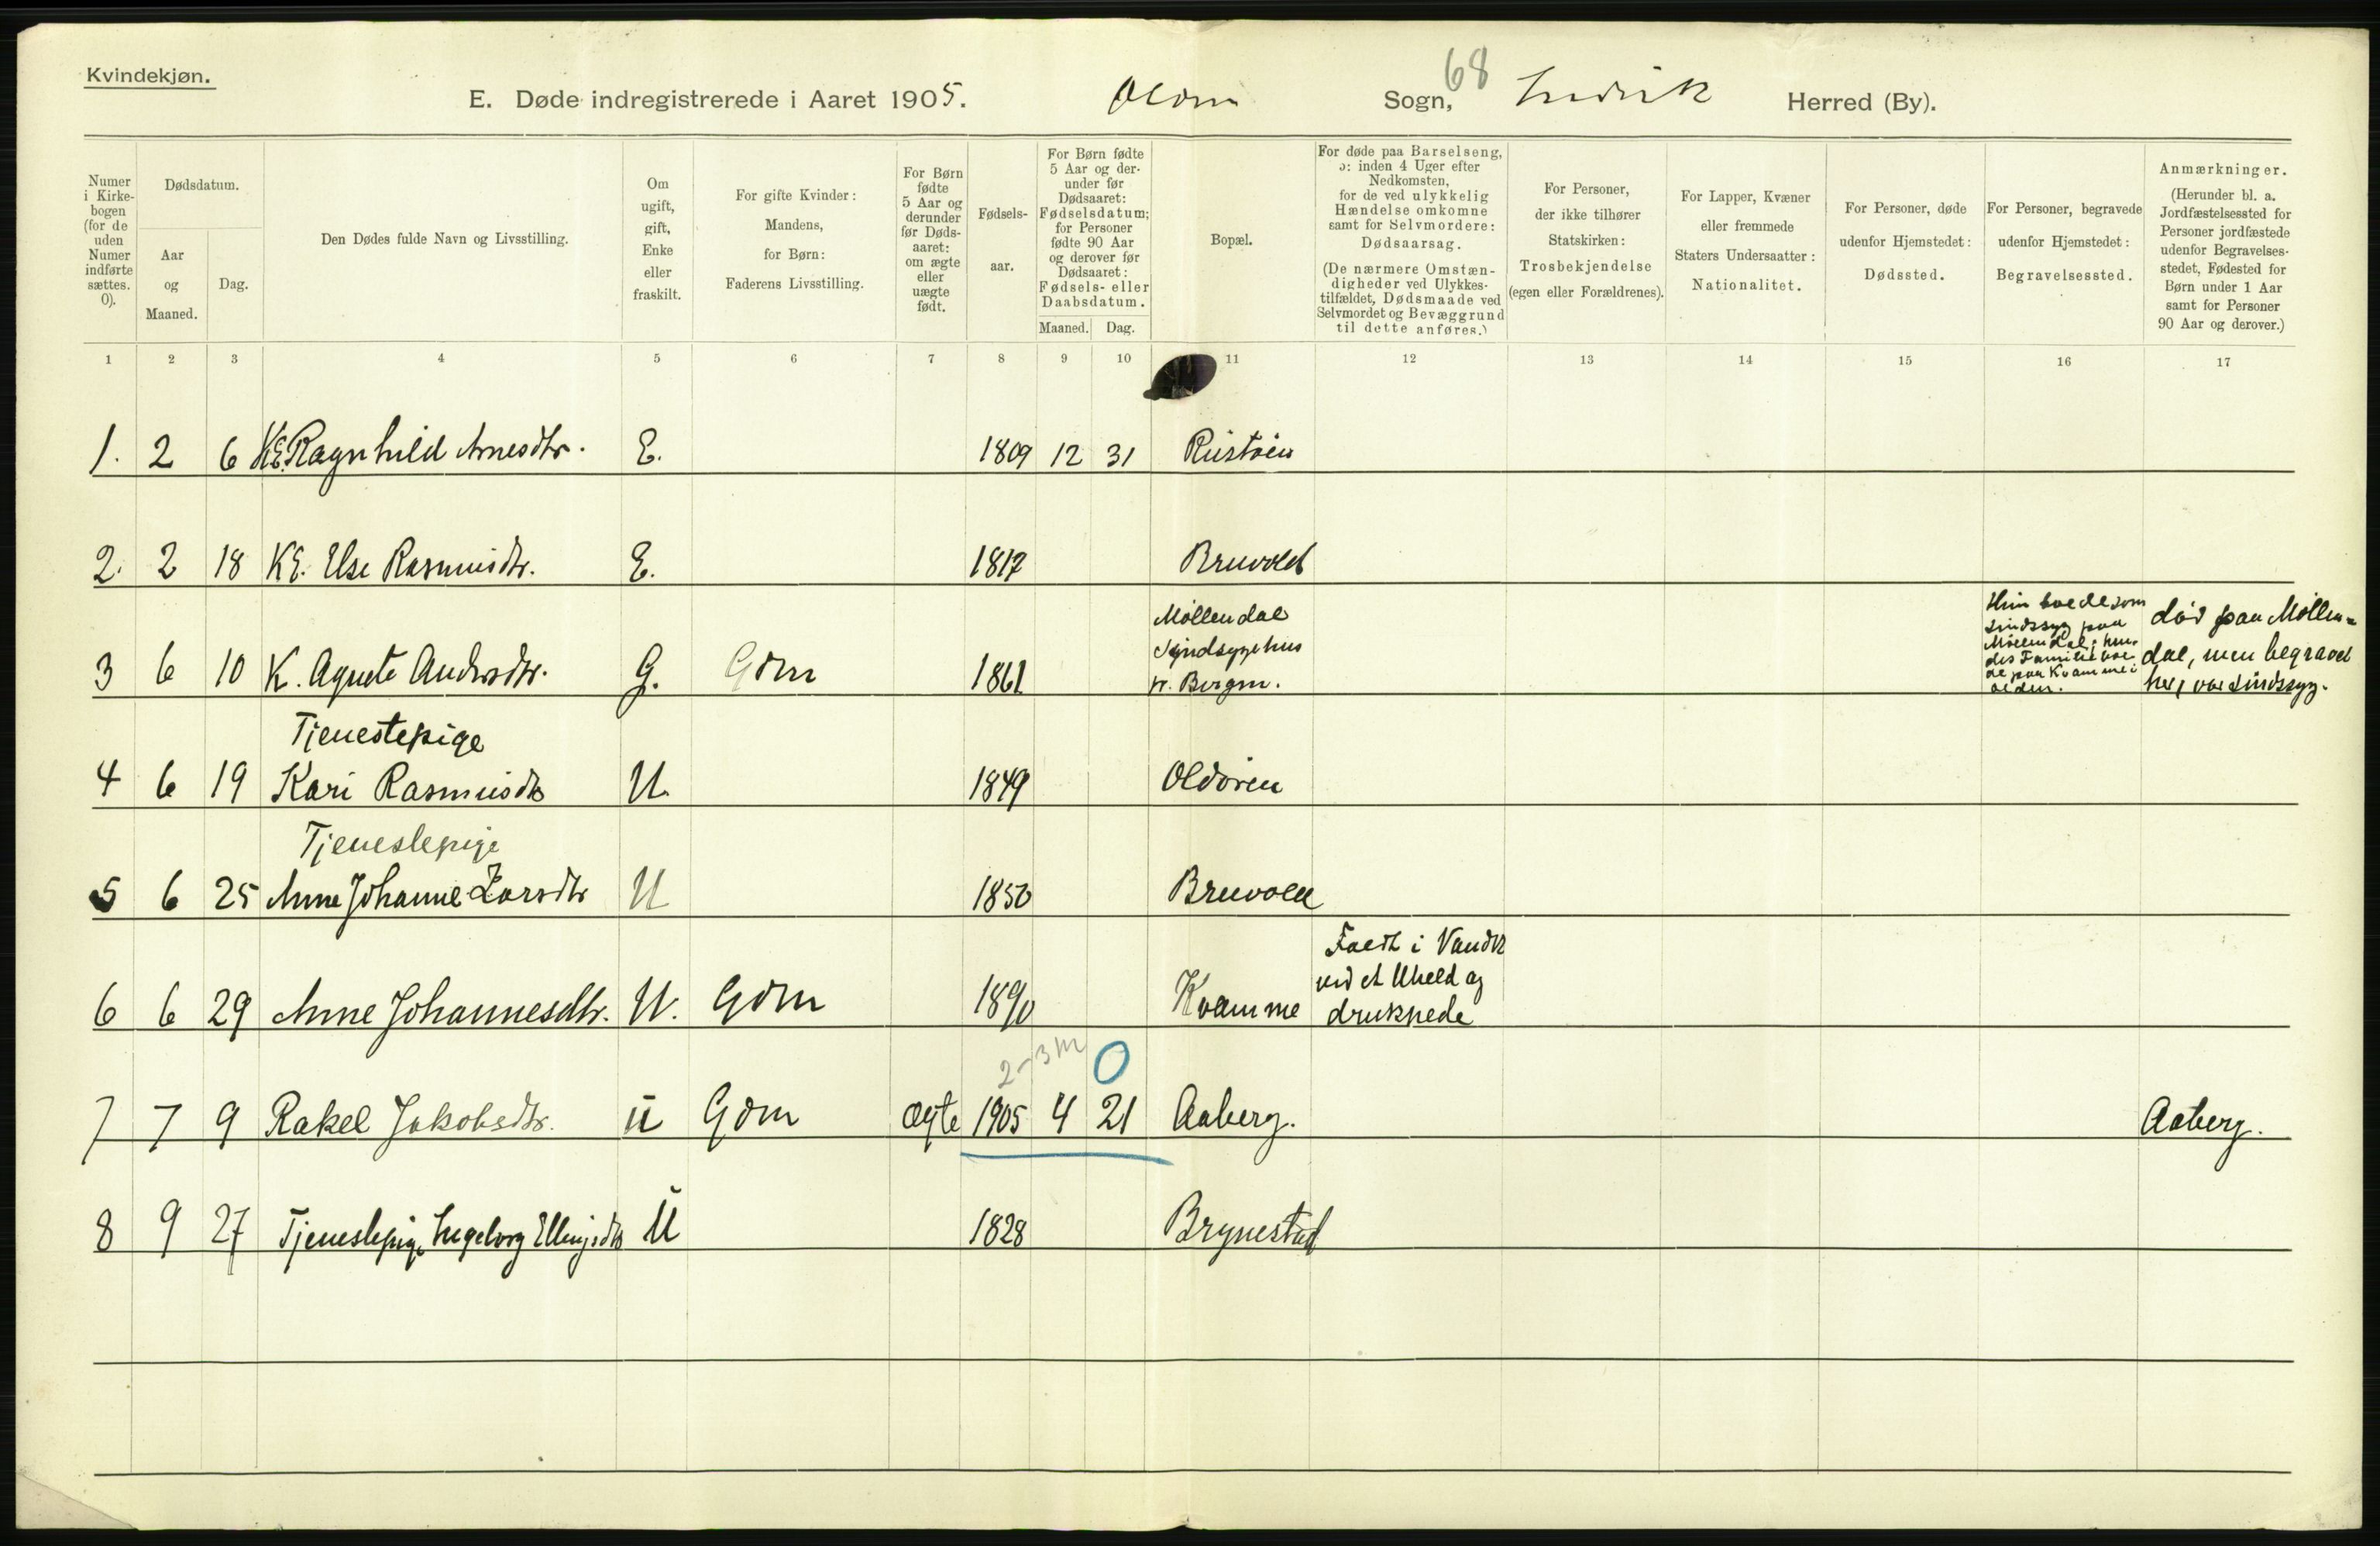 Kvindekjøn.
E. Døde indregistrerede i Aaret 1905. Olden Sogn, 68 Indvik Herred (By).
Numer i Kirke-bogen (for de uden Numer indførte sættes. 0).
Dødsdatum.
Aar og Maaned.
Dag.
Den Dødes fulde Navn og Livsstilling.
Om ugift, gift, Enke eller fraskilt.
For gifte Kvinder: Mandens, for Børn: Faderens Livsstilling.
For Børn fødte 5 Aar og derunder før Døds-aaret: om ægte eller uægte født.
Fødsels-aar.
For Børn fødte 5 Aar og der-under før Dødsaaret: Fødselsdatum; for Personer fødte 90 Aar og derover før Dødsaaret: Fødsels- eller Daabsdatum.
Maaned. Dag.
Bopæl.
For døde paa Barselseng, ɔ: inden 4 Uger efter Nedkomsten, for de ved ulykkelig Hændelse omkomne samt for Selvmordere: Dødsaarsag. (De nærmere Omstæn-digheder ved Ulykkes-tilfældet, Dødsmaade ved Selvmordet og Bevæggrund til dette anføres.)
For Personer, der ikke tilhører Statskirken: Trosbekjendelse (egen eller Forældrenes).
For Lapper, Kvæner eller fremmede Staters Undersaatter: Nationalitet.
For Personer, døde udenfor Hjemstedet: Dødssted.
For Personer, begravede udenfor Hjemstedet: Begravelsessted.
Anmærkninger. (Herunder bl. a. Jordfæstelsessted for Personer jordfæstede udenfor Begravelses-stedet, Fødested for Børn under 1 Aar samt for Personer 90 Aar og derover.)
1 2 3 4 5 6 7 8 9 10 11 12 13 14 15 16 17
1. 2 6 KE. Ragnhild Arnesdtr. E. 1809 12 31 Rustøen
2. 2 18 KE. Else Rasmusdtr. E. 1817 Bruvold
Møllendal
Sindsygehus
3 6 10 K. Agnete Andersdtr. G. Gdm 1861 pr. Bergen.
Hun boede som
Sindssyg paa
Møllendal; hen-
des Familie bor
de paa Kvamme i
Olden.
død paa Møllen-
dal, men begravet
her, var Sindssyg.
Tjenestepige
4 6 19 Kari Rasmusdtr U. 1849 Oldøren
Tjenestepige
5 6 25 Anne Johanne Larsdtr U 1850 Bruvold
Faldt i Vandet
ved et Uheld og
6 6 29 Anne Johannesdtr. U. Gdm 1890 Kvamme druknede
2-3 m 0
7 7 9 Rakel Jakobsdtr. U Gdm Ægte 1905 4 21 Aaberg. Aaberg.
8 9 27 Tjenestepige Ingeborg Ellingsdtr U 1828 Brynestad